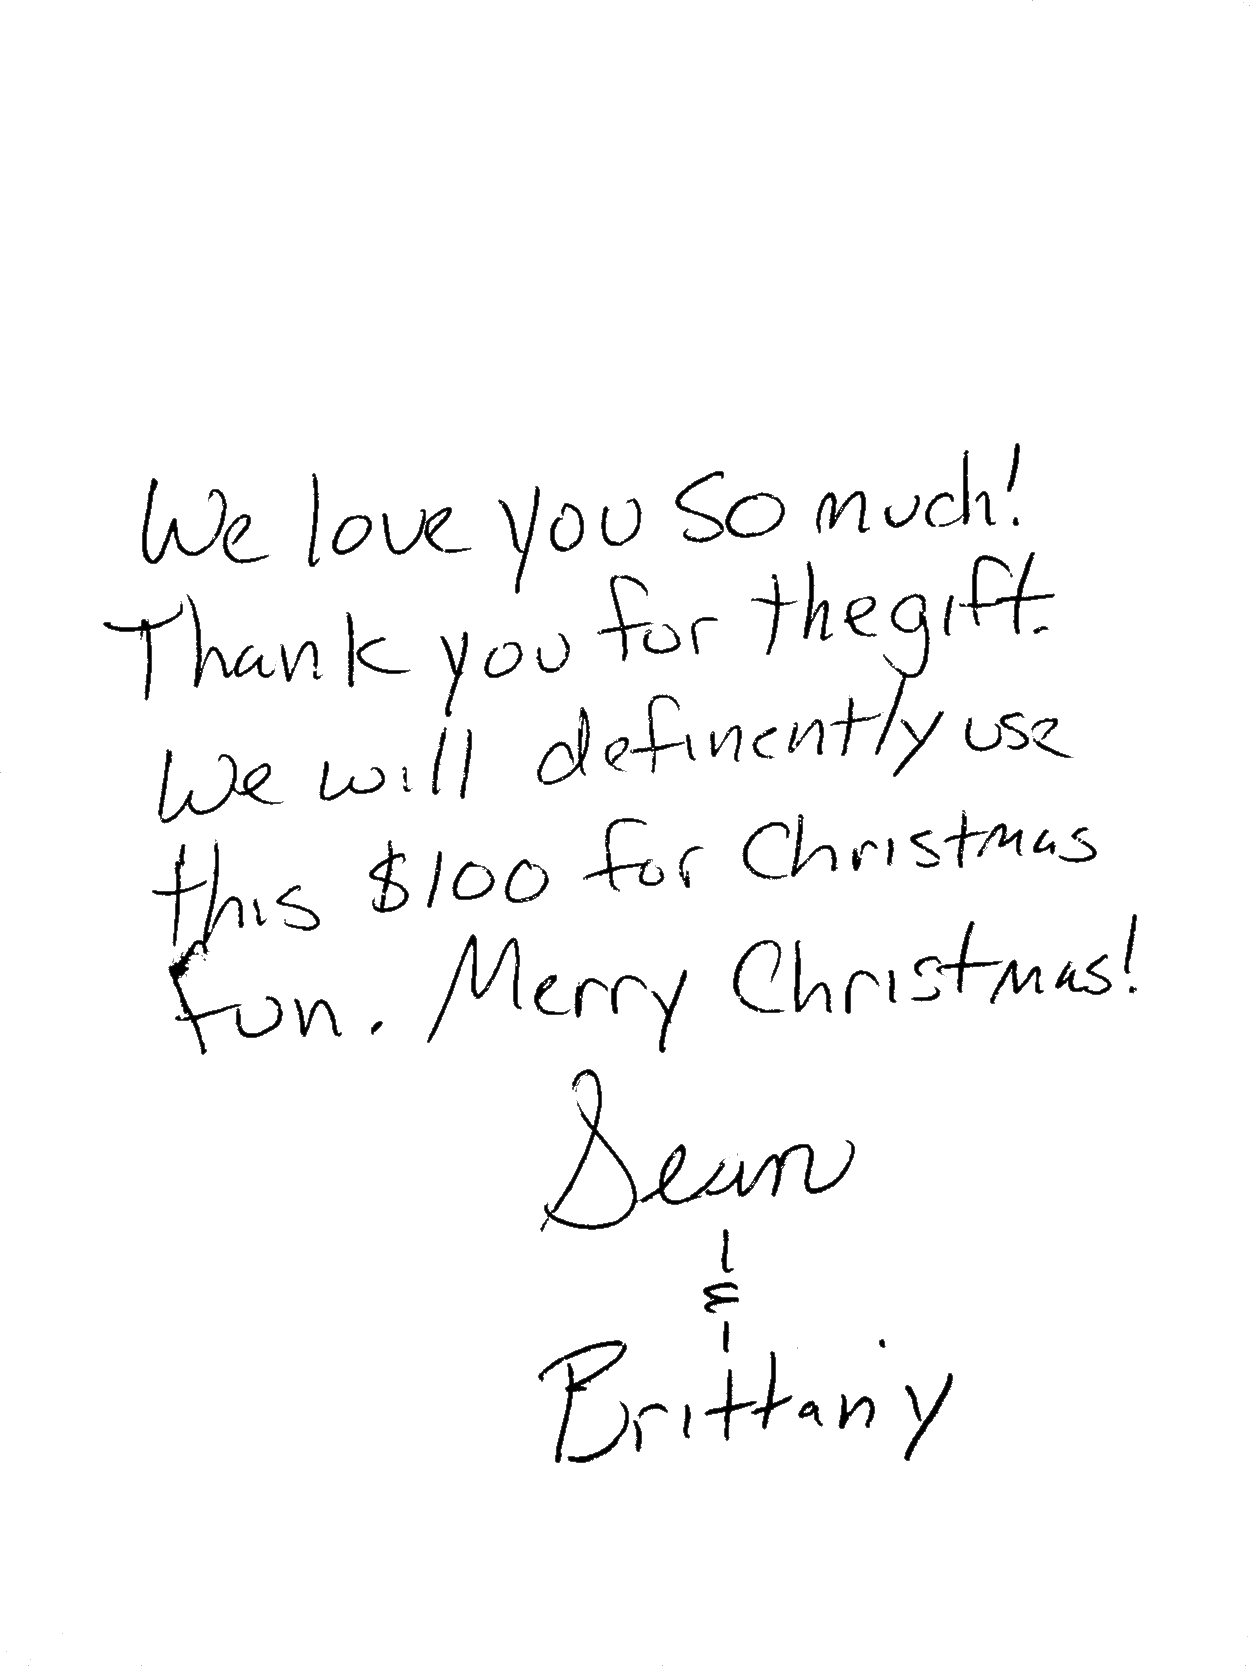 We love you so much!
Thank you for the gift.
We will definently use
this $100 for Christmas
fun. Merry Christmas!
Sean
&
Brittany